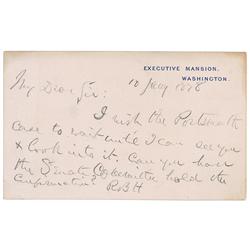 EXECUTIVE MANSION.
WASHINGTON.
10 Jany 1878
My Dear Sir:
I wish the Portsmouth
case to wait until I can see you
& look into it. Can you have
the Senate Committee hold the
Confirmation?
R B H